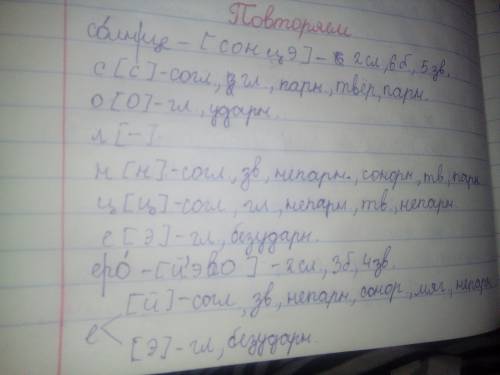 Повторяем
со́лнце - [сонцэ] - 2сл, 6б, 5зв.
с [с] - согл, гл, парн, твёр, парн.
о [о] - гл, ударн.
л [-]
н [н] - согл, зв, непарн., сонорн, тв, парн
ц [ц] - согл, гл, непарн, тв, непарн.
е [э] - гл, безударн.
его́ - [й'эво́] - 2сл, 3б, 4зв.
[й] - согл, зв, непарн, сонор, мяг, непарн
е
[э] - гл, безударн.